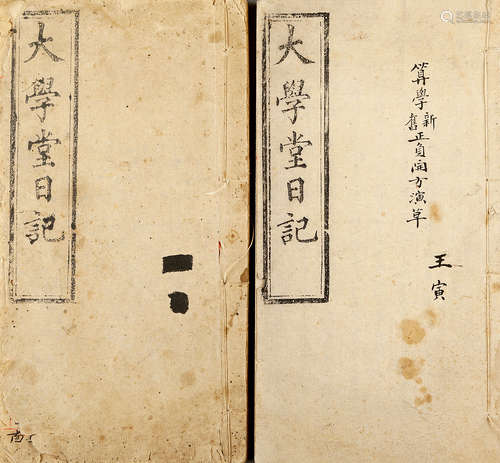 大學堂日記
大學堂日記
算學新舊正負開方演草
王寅